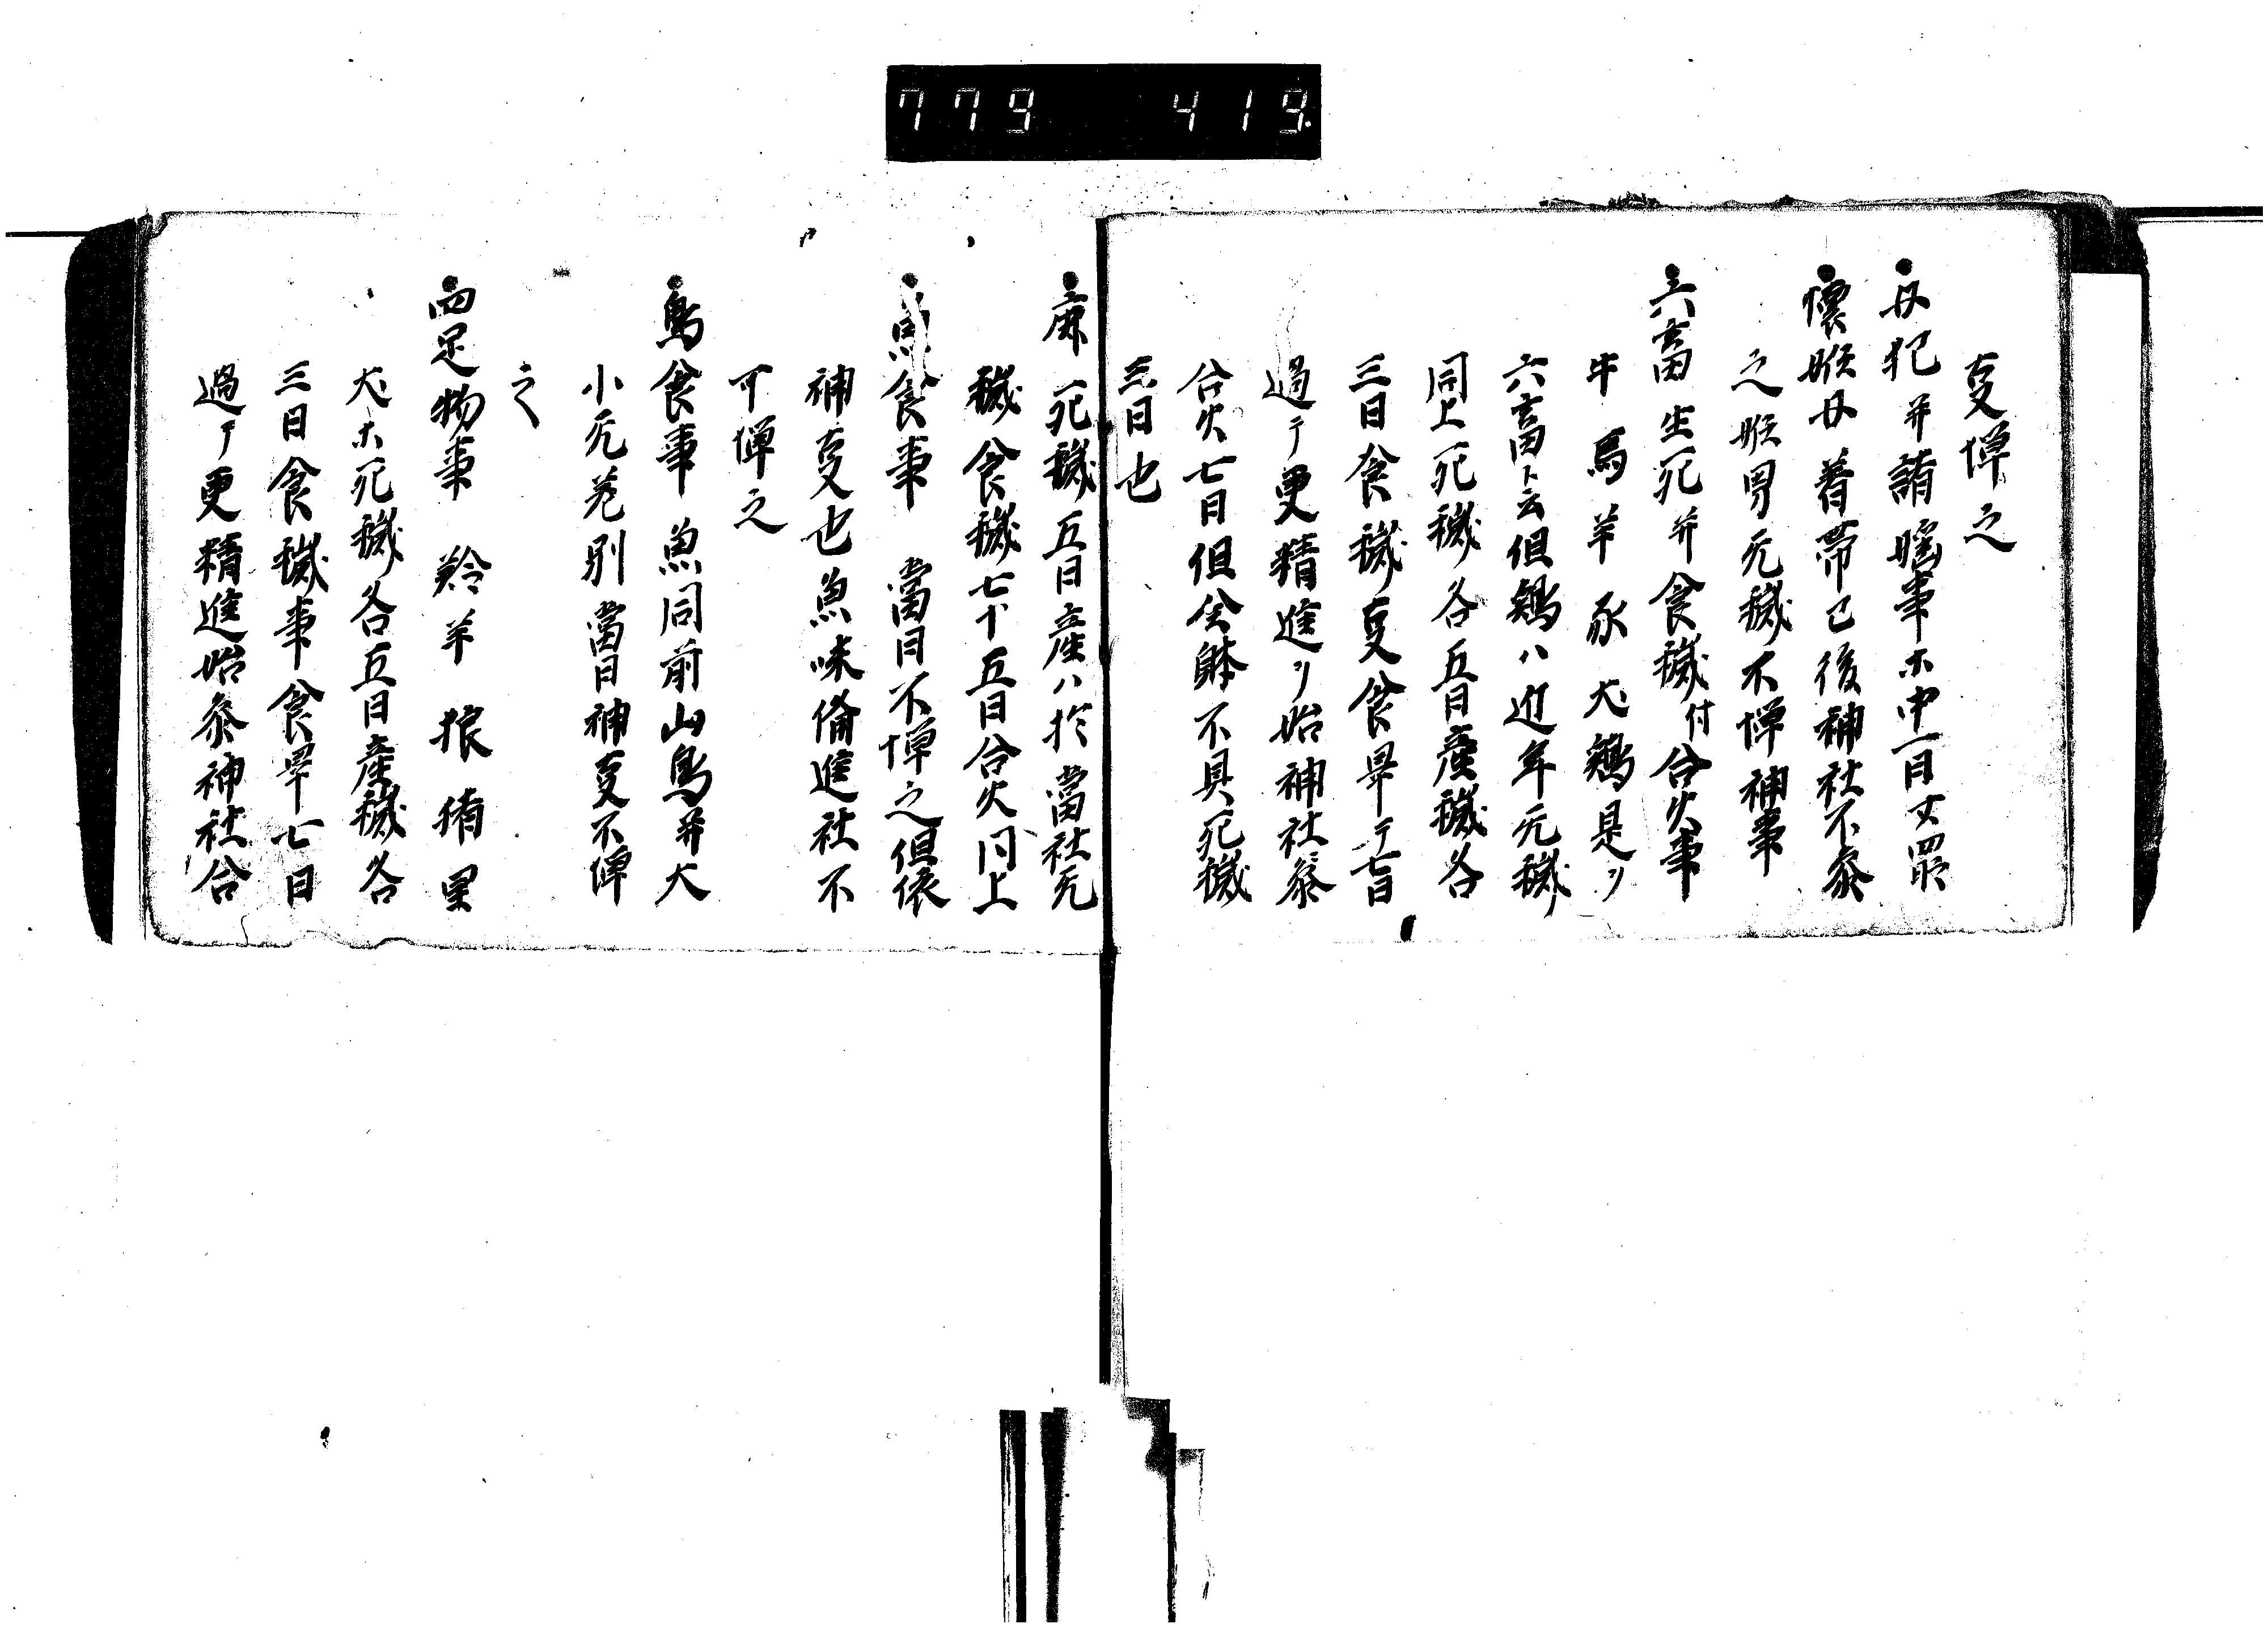 779 419.
叓憚之
女犯并精婬事ホ中一日丈罪
懐姙女着帯已後神社不参
之姙男元穢不憚神事
六畜生死并食穢付合火事
牛馬羊豕犬鶏是ソ
六畜ト云但鶏ハ近年元穢
同上死穢各五日産穢各
三日食穢叓食畢テ七日
過テ更精進ソ始神社参
合火七日但全躰不具死穢
三日也
鹿死穢五日産ハ於當社元
穢食穢七十五日合火同上
魚食事 當日不憚之但依
神叓也魚味備進社不
可憚之
鳥食事 魚同前山鳥并大
小元差別當日神叓不憚
之
四足物事 羚羊 狼 猯 里
犬ホ死穢各五日産穢各
三日食穢事食畢七日
過テ更精進始参神社合